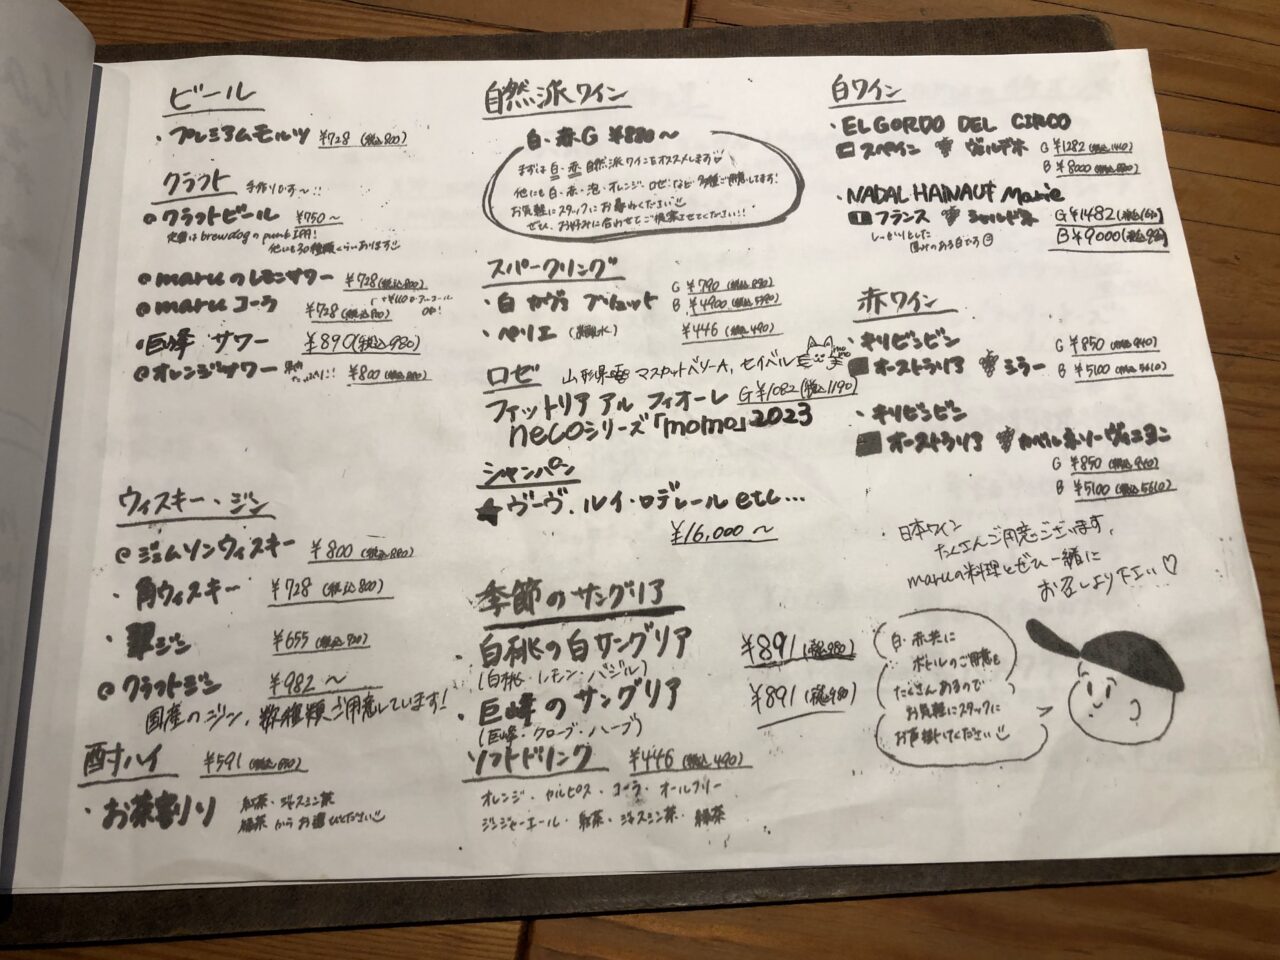 ビール
・プレミアムモルツ ¥728 (税込800)
クラフト 手作りです〜!!
クラフトビール ¥750〜
定番はbrewdogのpunk IPA!
他にも30種類くらいあります
maruのレモンサワー ¥728(税込800)
maruコーラ ¥728(税込800)
巨峰サワー ¥890(税込980)
オレンジサワー ¥800(税込880)
ウィスキー・ジン
ジェムソンウィスキー ¥800 (税込880)
・角ウィスキー ¥728 (税込800)
・ジン ¥655(税込720)
クラフトジン ¥982〜
国産のジン、数種類ご用意しています!
酎ハイ ¥591(税込650)
・お茶割り 紅茶・ジャスミン茶
緑茶からお選びください
自然派ワイン
白・赤G ¥880〜
まずは白・赤 自然派ワインをオススメします♡
他にも白・赤・泡・オレンジ・ロゼ・など多種ご用意してます!
お気軽にスタッフにお尋ねください
ぜひ、お好みに合わせてご提案させてください!!
スパークリング
・白 カヴァ ブリュット G ¥790(税込890)
B ¥4900(税込5390)
・ペリエ(炭酸水) ¥446(税込490)
ロゼ 山形県産 マスカットベリーA、セイベル
ファットリア アル フィオーレ G¥1082(税込1190)
necoシリーズ「momo」2023
シャンパン
★ヴーヴ、ルイ・ロデレール etc...
¥16,000〜
季節のサングリア
・白桃の白サングリア ¥891(税込980)
(白桃・レモン・バジル)
・巨峰のサングリア ¥891(税込980)
(巨峰・クローブ・ハーブ)
ソフトドリンク ¥446(税込490)
オレンジ・カルピス・コーラ・オールフリー
ジンジャーエール・紅茶・ジャスミン茶・緑茶
白ワイン
・EL GORDO DEL CIRCO
スペイン ヴェルデホ G ¥1282(税込1410)
B ¥8000(税込8800)
NADAL HAINAUT Marie
フランス シャルドネ G¥1482
しっかりとした
厚みのある白です
B¥9000
赤ワイン
・キリビンビン G ¥850(税込940)
オーストラリア シラー B ¥5100(税込5610)
・キリビンビン
オーストラリア カベルネソーヴィニヨン
G ¥850(税込940)
B ¥5100(税込5610)
・日本ワイン
たくさんご用意ございます、
maruの料理とぜひ一緒に
お召しより下さい♡
白・赤共に
ボトルのご用意も
たくさんあるので
お気軽にスタッフに
お声掛けください